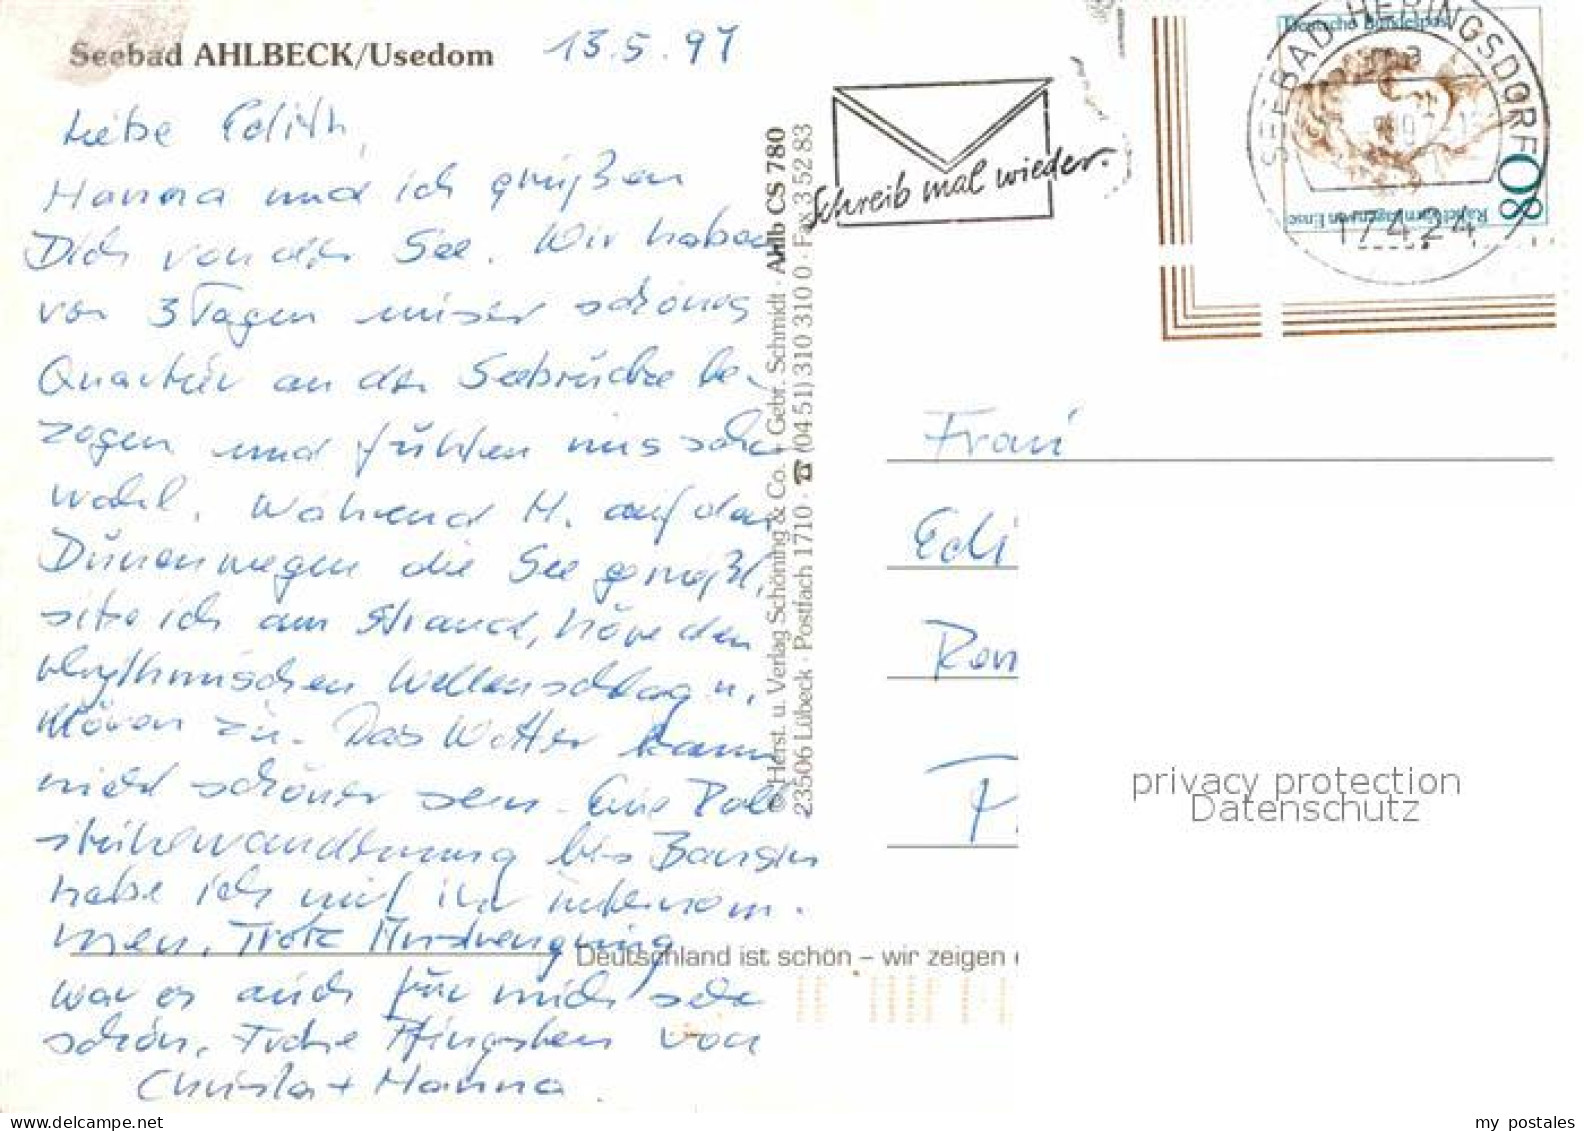 Seebad AHLBECK/Usedom 13.5.97
Liebe Edith,
Hanna und ich grüßen
Dich von der See. Wir haben
vor 3 Tagen unser schönes
Quartier an der Seebrücke be-
zogen und fühlen uns sehr
wohl. Während H. auf den
Dünenwegen die See genießt,
sitze ich am Strand, höre den
rhythmischen Wellenschlag u.
Möven zu. Das Wetter kann
nicht schöner sein. Eine Rad
wanderung bis Bansin
habe ich mit ihr unternom-
men. Trotz Anstrengung
war es auch für mich sehr
schön. Frohe Pfingsten von
Christa + Hanna.
© Herst. u. Verlag Schöning & Co. + Gebr. Schmidt · Ahlb CS 780
23506 Lübeck · Postfach 1710 · ☎ (04 51) 310 310 0 · Fax 3 52 83
Schreib mal wieder.
Deutsche Bundespost
80
Rahel Varnhagen von Ense
SEEBAD HERINGSDORF
17424
Frau
Edi
Ren
privacy protection
Datenschutz
Deutschland ist schön – wir zeigen
my postales